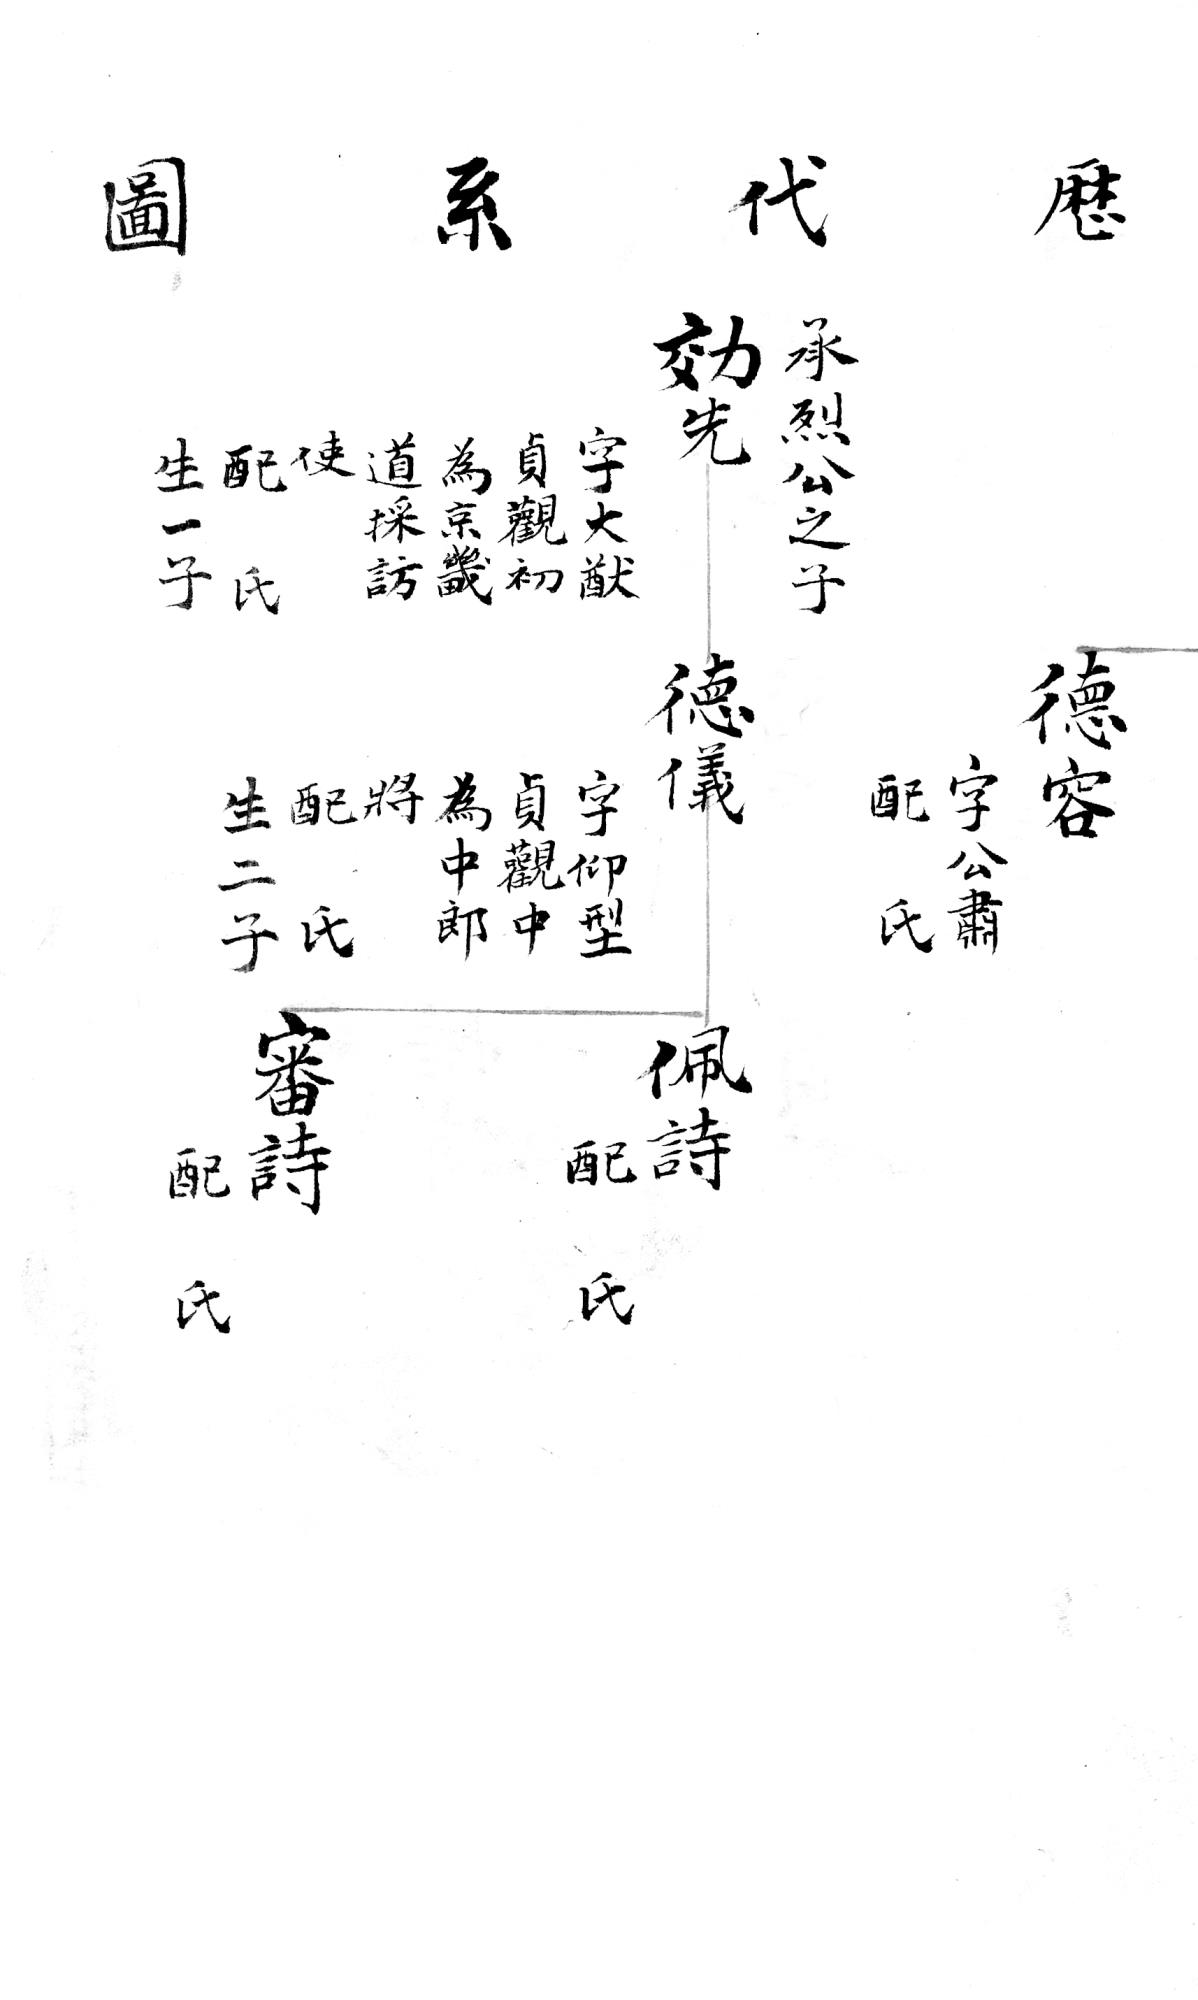 歷代系圖
德容
字公肅
配　氏
承烈公之子
効先
字大猷
貞觀初
為京畿
道採訪
使
配　氏
生一子
德儀
字仰型
貞觀中
為中郎
將
配　氏
生二子
佩詩
配　氏
審詩
配　氏